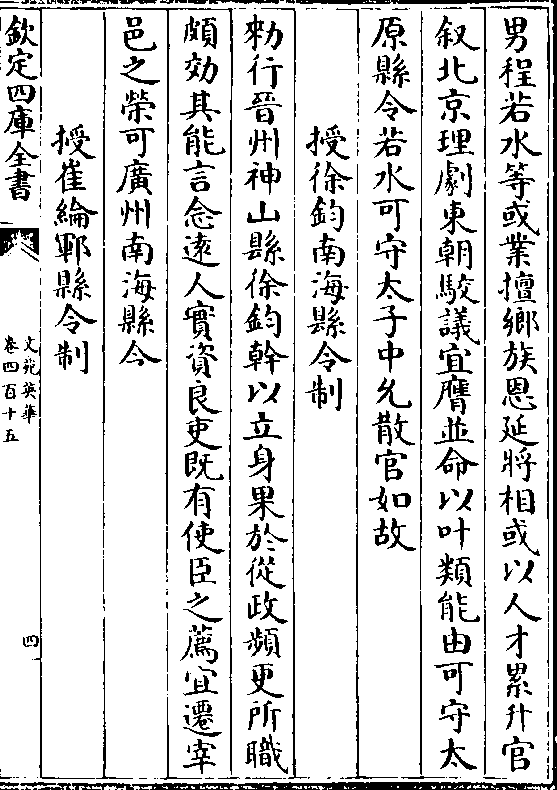 男程若水等或業擅鄉族恩延將相或以人才累升官
叙北京理劇東朝駮議宜膺並命以叶類能由可守太
原縣令若水可守太子中允散官如故
授徐鈞南海縣令制
勑行晉州神山縣徐鈞幹以立身果於從政頻更所職
頗効其能言念遠人實資良吏既有使臣之薦宜遷宰
邑之榮可廣州南海縣令
授崔綸鄆縣令制
欽定四庫全書
文苑英華
卷四百十五
四